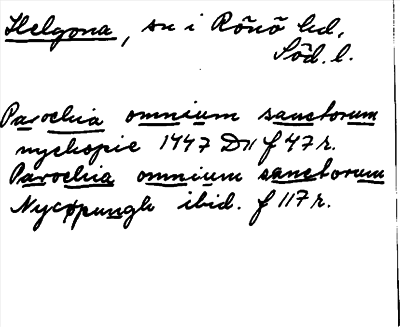 Helgona, sn i Rönö hd,
Söd. l.
Parochia omnium sanctorum
nychopie 1447 D11 f 47 r.
Parochia omnium sanctorum
Nycøpungh ibid. f 117 r.